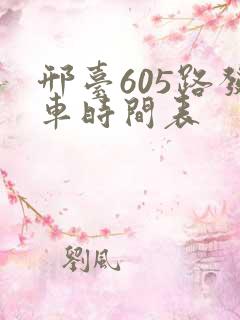 邢臺605路發
車時間表
劉風